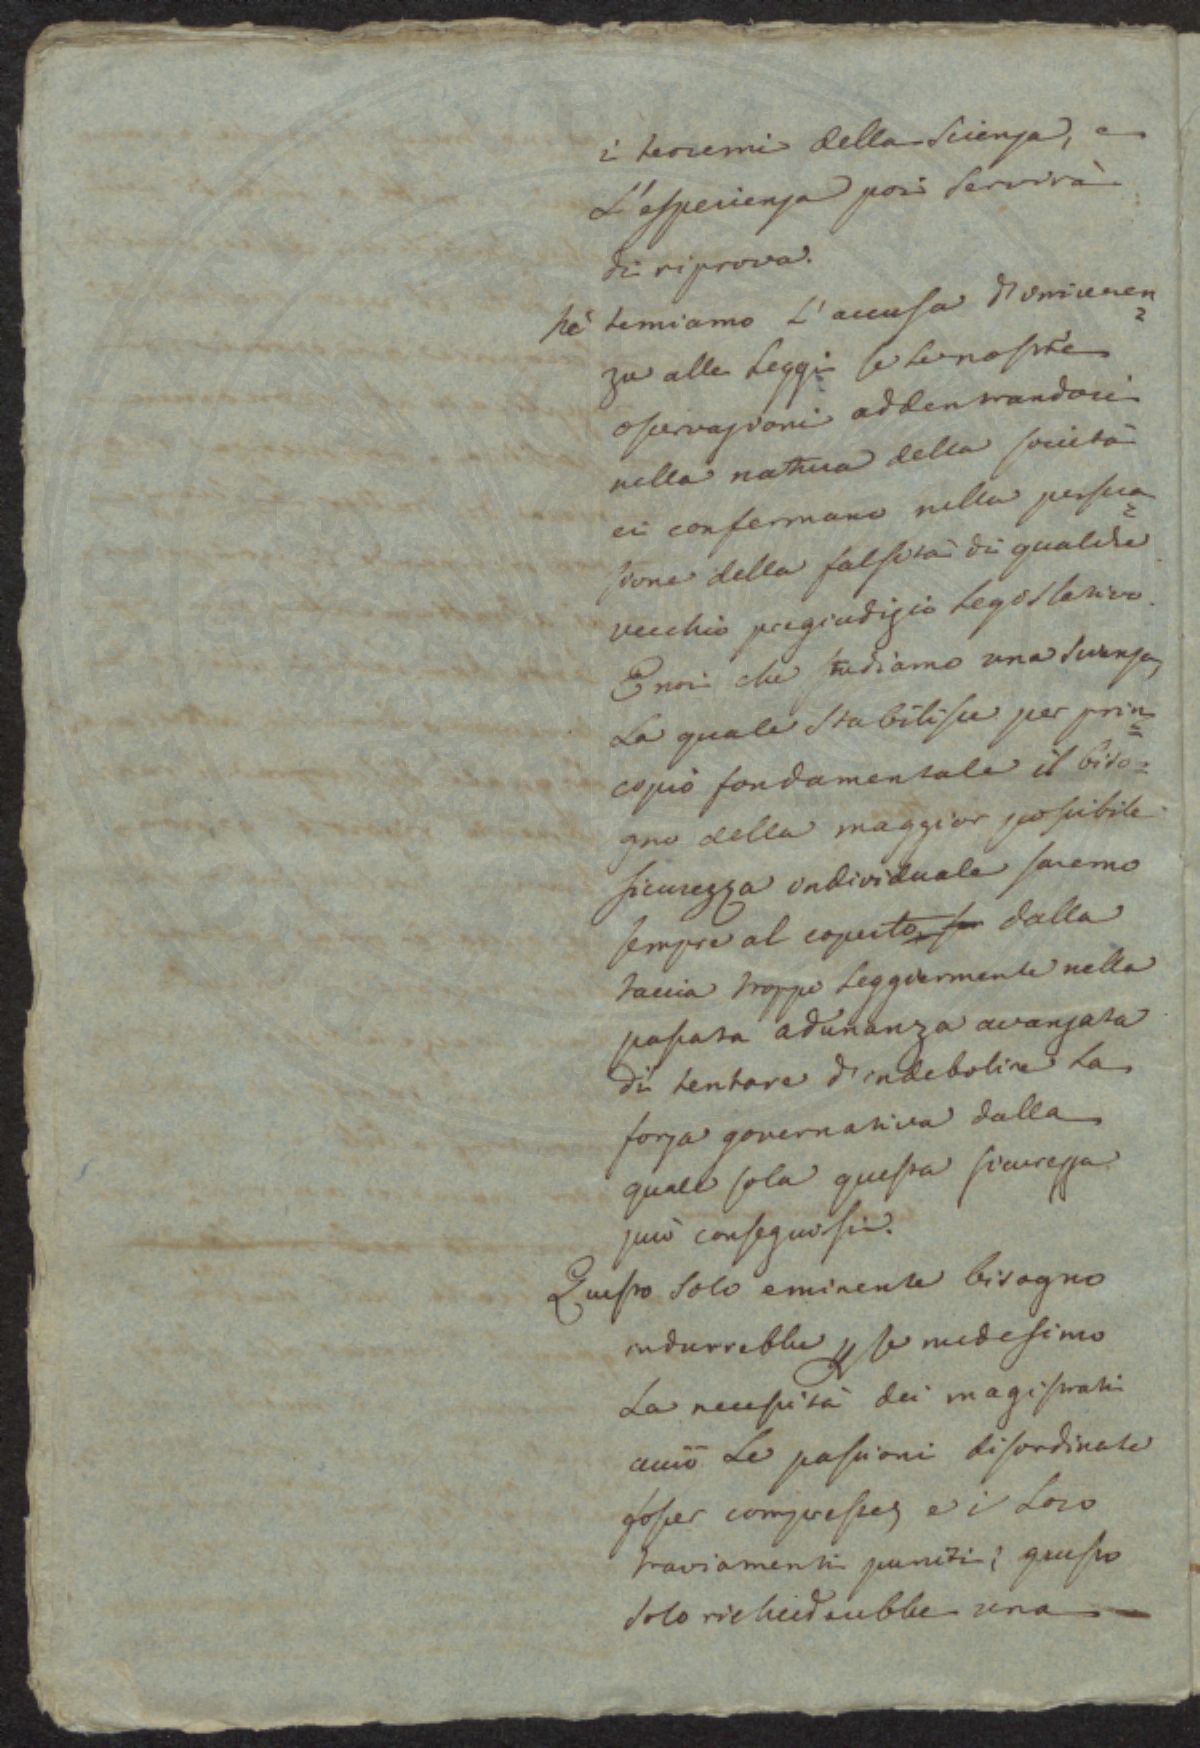 i teoremi della Scienza, e
L'esperienza poi servirà
di riprova.
Nè temiamo l'accusa d'irriveren
za alle Leggi se le nostre
osservazioni addentrandoci
nella natura della società
ci confermano nella persua
sione della falsità di qualche
vecchio pregiudizio Legislativo.
E noi che studiamo una Scienza,
La quale Stabilisce per prin=
cipio fondamentale il biso=
gno della maggior possibile
sicurezza individuale saremo
sempre al coperto dalla
taccia troppo Leggiermente nella
passata adunanza avanzata
di tentare d'indebolire La
forza governativa dalla
quale sola questa sicurezza
può conseguirsi.
Questo Solo eminente bisogno
indurrebbe se medesimo
La necessità dei magistrati
acciò Le passioni disordinate
fosser compresse, e i Loro
traviamenti puniti; questo
Solo richiederebbe una